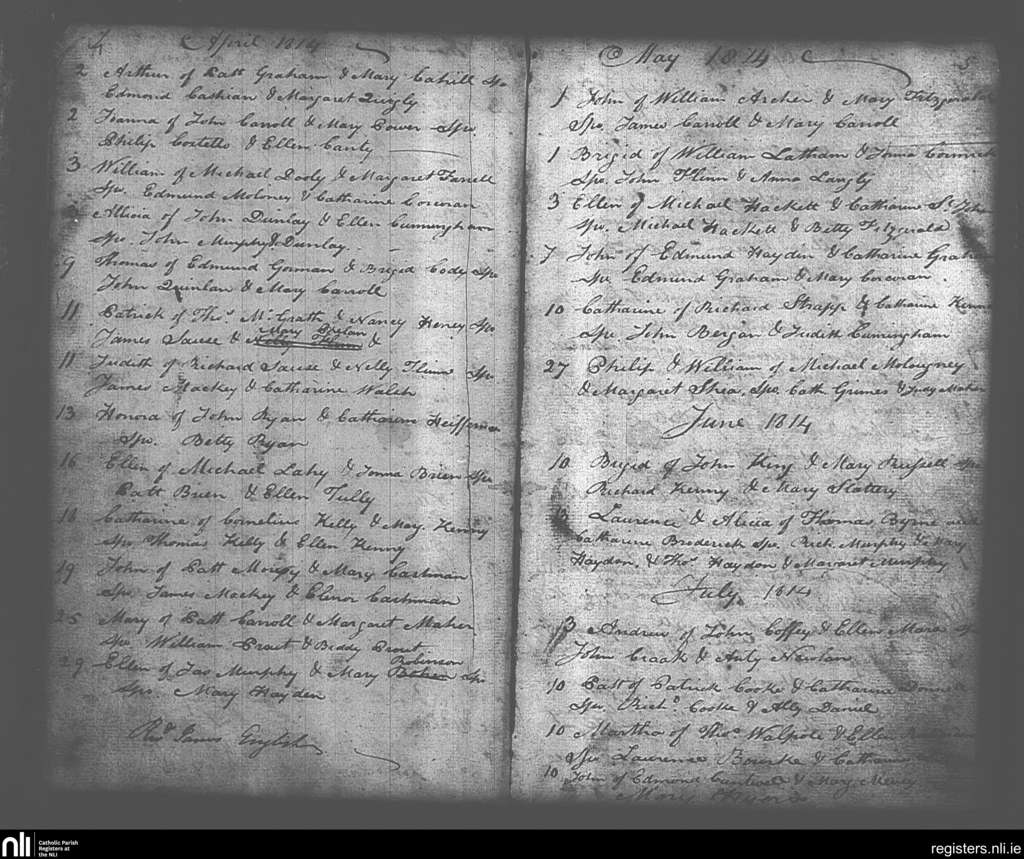 4
April 1814
2 Arthur of Patt Graham & Mary Cahill Spo
Edmond Cashian & Margaret Quigly
2 Joanna of John Carroll & Mary Power Spo.
Philip Costello & Ellen Canty
3 William of Michael Dooly & Margaret Farrell
Spo. Edmund Moloney & Catharine Corcoran
Allicia of John Dunlay & Ellen Cunningham
Spo. John Murphy & Dunlay.
9 Thomas of Edmund Gorman & Brigid Cody Spo
John Quinlan & Mary Carroll
11 Patrick of Thos. McGrath & Nancy Heney Spo
Mary
James Sause & &
11 Judith of Richard Sause & Nelly Flinn Spo
James Mackey & Catharine Walsh
13 Honora of John Ryan & Catharine Heiffernan
Spo. Betty Ryan
16 Ellen of Michael Lahy & Joanna Brien Spo
Patt Brien & Ellen Tully
18 Catharine of Cornelius Kelly & Mary Kenny
Spo Thomas Kelly & Ellen Kenny
19 John of Patt & Mary Cashman
Spo. James Mackey & Elenor Cashman
25 Mary of Patt Carroll & Margaret Maher
Spo. William Prout & Biddy Prout
Robinson
29 Ellen of Jas Murphy & Mary Spo
Spo. Mary Hayden
Revd. James English
May 1814
5
1 John of William Archer & Mary Fitzgerald
Spo. James Carroll & Mary Carroll
1 Brigid of William Latham & Joanna Cormick
Spo. John Flinn & Anna Langly
3 Ellen of Michael Hackett & Catharine St. John
Spo. Michael Hackett & Betty Fitzgerald
7 John of Edmund Hayden & Catharine Graham
Spo Edmund Graham & Mary Corcoran
10 Catharine of Richard Strapp & Catharine Kenny
Spo. John Bergan & Judith Cuningham
27 Philip & William of Michael Moloughney
& Margaret Shea, Spo. Cath Grimes & Judy Maher
June 1814
10 Brigid of John King & Mary Russell Spo
Richard Kenny & Mary Slattery
Laurence & Alicia of Thomas Byrne and
Catharine Broderick Spo. Rich. Murphy & Mary
Haydon, & Thos. Haydon & Margaret Murphy
July 1814
3 Andrew of John Coffey & Ellen Mara Spo
John Craak & Anty Nowlan
10 Patt of Patrick Cooke & Catharine
Spo. Richd. Cooke & Ally Daniel
10 Martha of Thos. Walpole & Ellen
Spo Laurence Bourke & Catharine
10 John of Edmond Cantwell & Mary
Mary
nli
Catholic Parish
Registers at
the NLI
registers.nli.ie